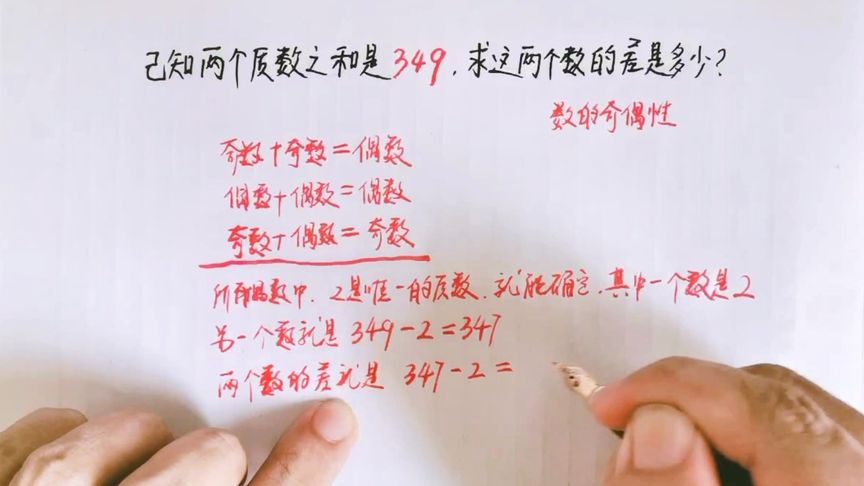 已知两个质数之和是349，求这两个数的差是多少？
数的奇偶性
奇数+奇数=偶数
偶数+偶数=偶数
奇数+偶数=奇数
所有偶数中，2是唯一的质数，就能确定，其中一个数是2
另一个数就是 349-2=347
两个数的差就是 347-2=